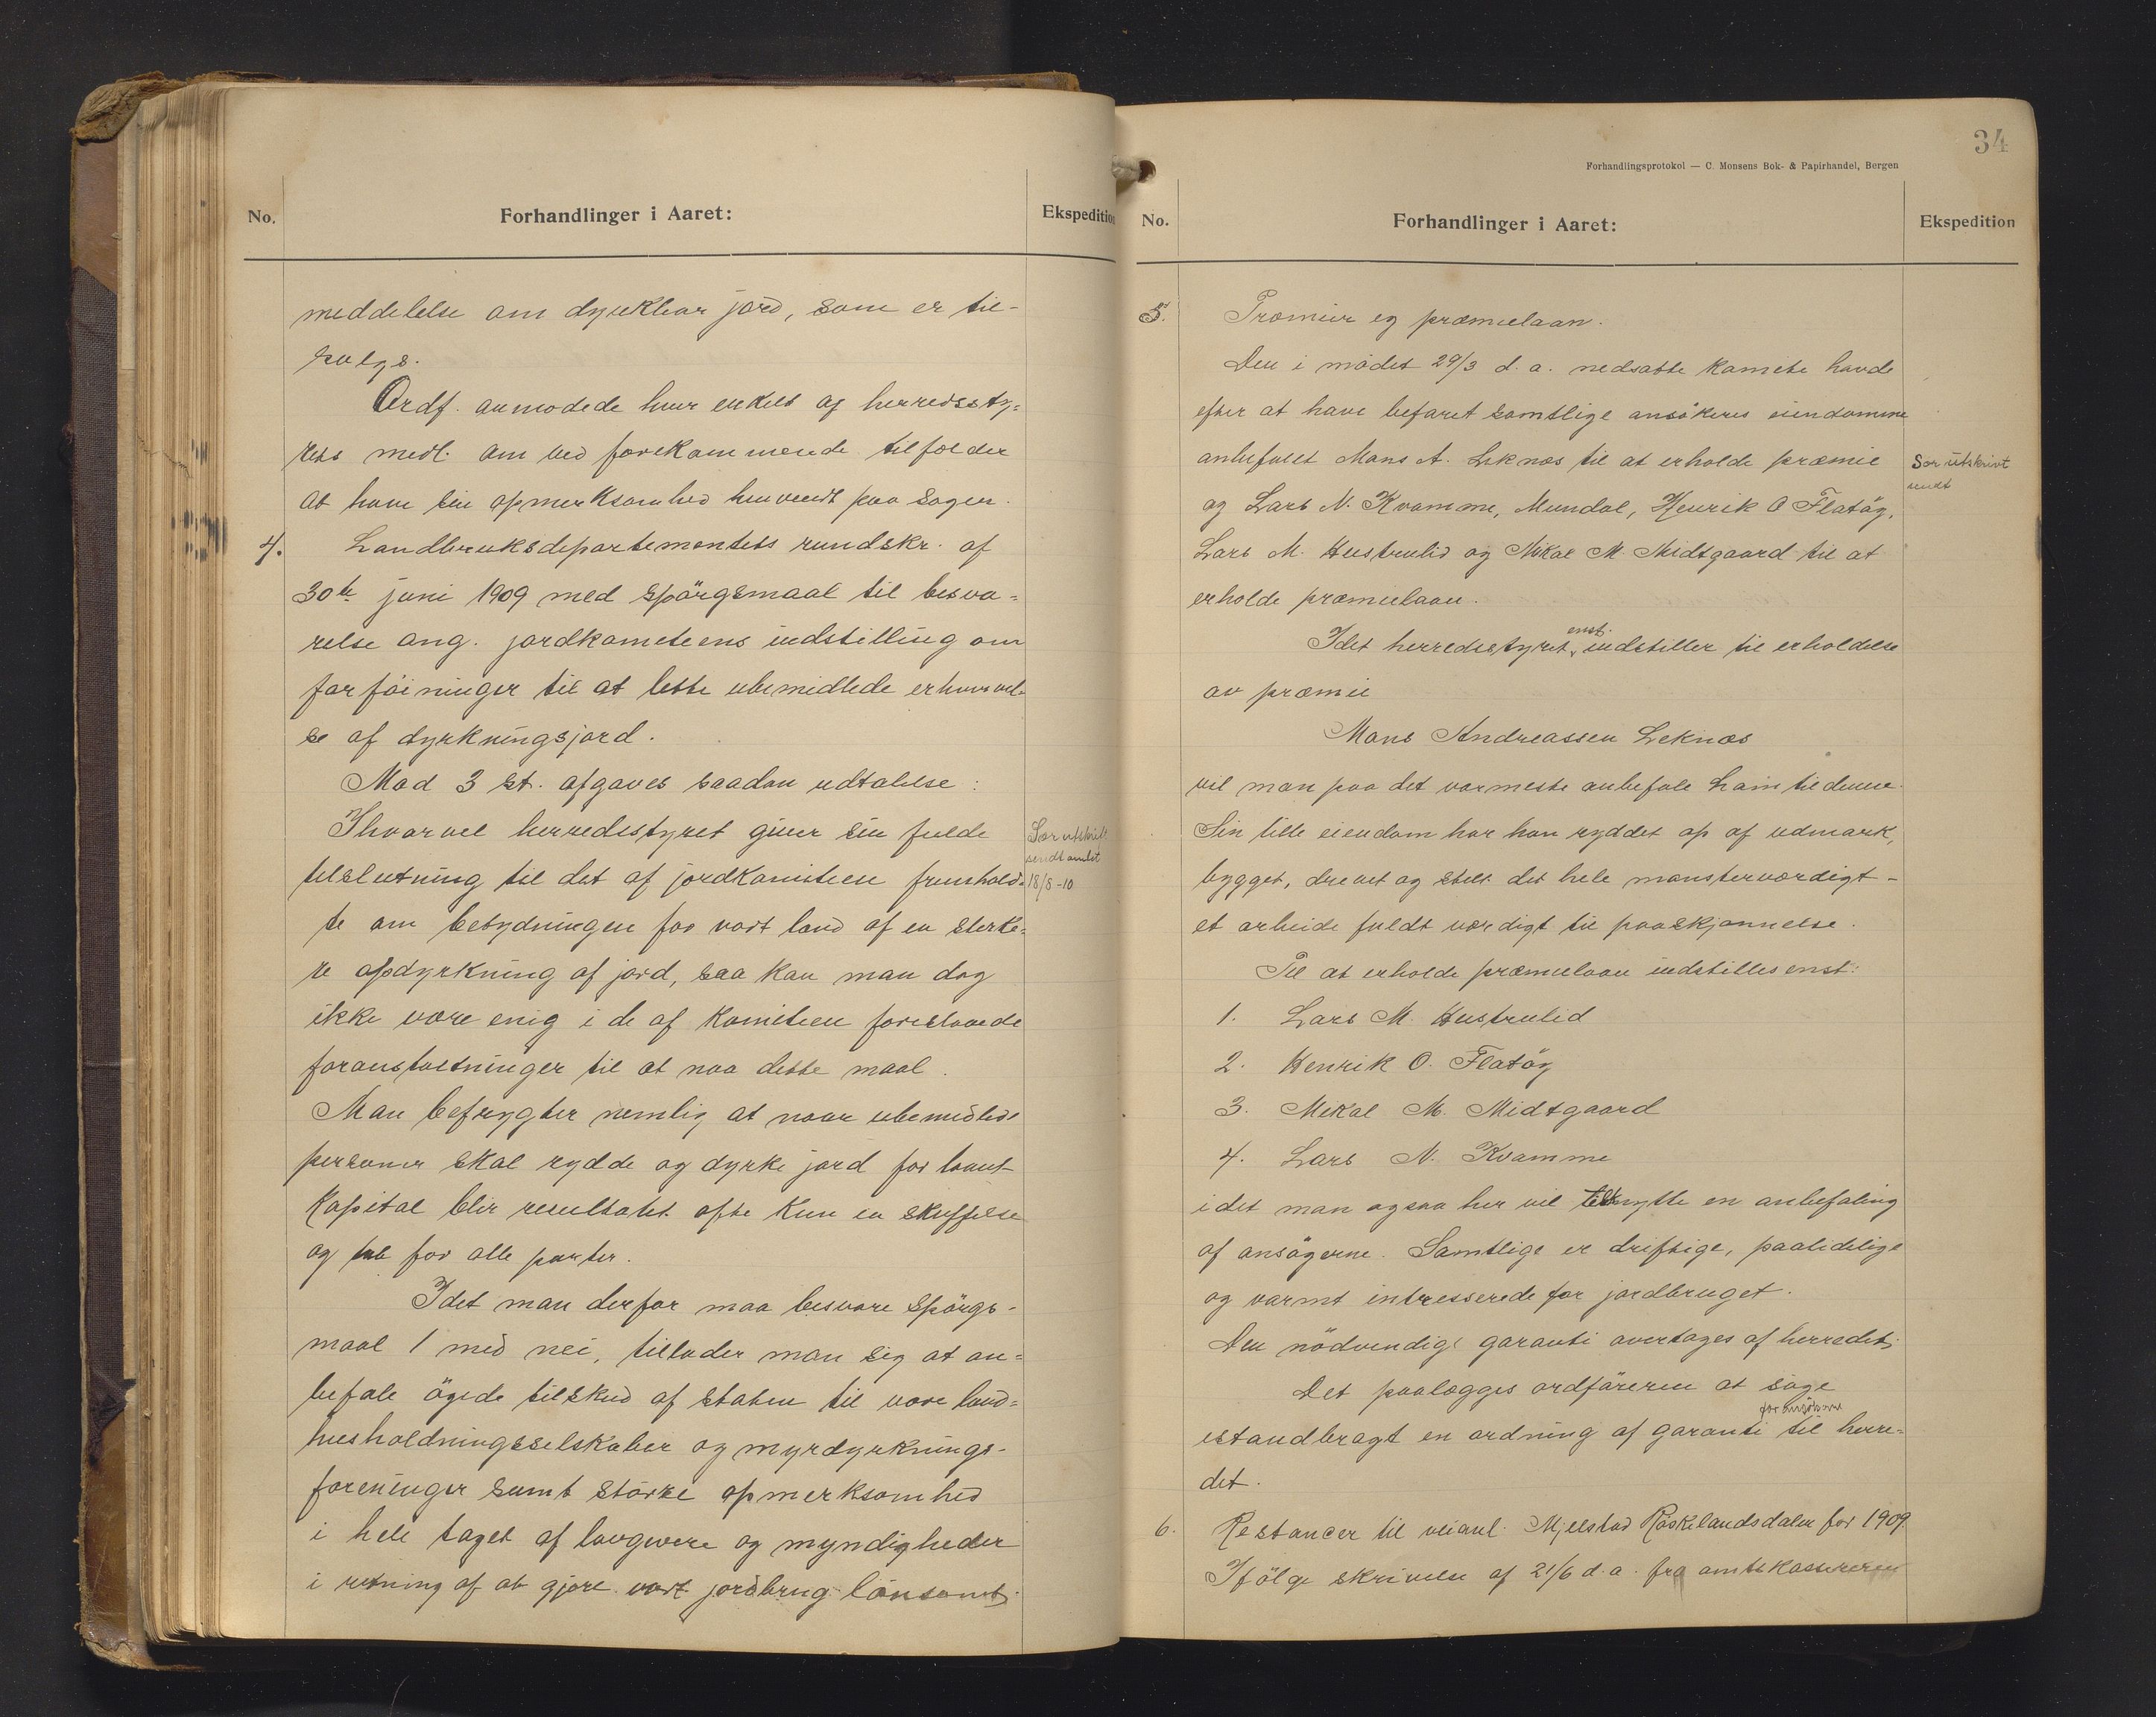 No.
Forhandlinger i Aaret:
Ekspedition
meddelelse om dyrkbar jord, som er til-
salgs.
Ordf. anmodede hver enkelt af herredssty-
rets medl. om ved forekommende tilfælder
at have sin opmerksomhed henvendt paa sagen.
4. Landbruksdepartementets rundskr. af
30te juni 1909 med spörgsmaal til besva-
relse ang. jordkomiteens indstilling om
forföininger til at lette ubemidlede erhvervel-
se af dyrkningsjord.
Mod 3 st. afgaves saadan udtalelse:
Ihvorvel herredsstyret giver sin fulde
tilslutning til det af jordkomiteen fremhold-
te om betydningen for vort land af en sterke-
re opdyrkning af jord, saa kan man dog
ikke være enig i de af komiteen foreslaaede
foranstaltninger til at naa dette maal.
Man befrygter nemlig at naar ubemidlede
personer skal rydde og dyrke jord for laant
kapital blir resultatet ofte kun en skuffelse
og tab for alle parter.
Idet man derfor maa besvare spörgs-
maal 1 med nei, tillader man sig at an-
befale ögede tilskud af staten til vore land-
husholdningsselskaber og myrdyrknings-
foreninger samt större opmerksomhed
i hele taget af lovgivere og myndigheder
i retning af at gjöre vort jordbrug lönsomt.
Særutskrift
sendt amtet
18/8-10
34
Forhandlingsprotokol — C. Monsens Bok- & Papirhandel, Bergen
No.
Forhandlinger i Aaret:
Ekspedition
5. Præmier og præmielaan.
Den i mödet 29/3 d. a. nedsatte komite havde
efter at have befaret samtlige ansökeres eiendomme
anbefalet Mons A. Leknæs til at erholde præmie
og Lars N. Kvamme, Mundal, Henrik O Flatöy,
Lars M. Hustrulid og Mikal M. Midtgaard til at
erholde præmielaan.
Særutskrivt
sendt
Idet herredsstyret enst. indstiller til erholdelse
av præmie
Mons Andreassen Leknæs
vil man paa det varmeste anbefale ham til denne.
Sin lille eiendom har han ryddet op af udmark,
bygget, drevet og stelt det hele mönsterværdigt -
et arbeide fuldt værdigt til paaskjönnelse.
Til at erholde præmielaan indstilles enst:
1. Lars M. Hustrulid
2. Henrik O. Flatöy
3. Mikal M. Midtgaard
4. Lars N. Kvamme
idet man ogsaa her vil tilknytte en anbefaling
af ansögerne. Samtlige er driftige, paalidelige
og varmt intresserede for jordbruget.
Den nödvendige garanti overtages af herredet.
Det paalægges ordföreren at söge
istandbragt en ordning af garanti for ansökerne til herre-
det.
6. Restancer til veianl. Mjelstad Röskelandsdalen for 1909.
Ifölge skrivelse af 21/6 d. a. fra amtskassereren